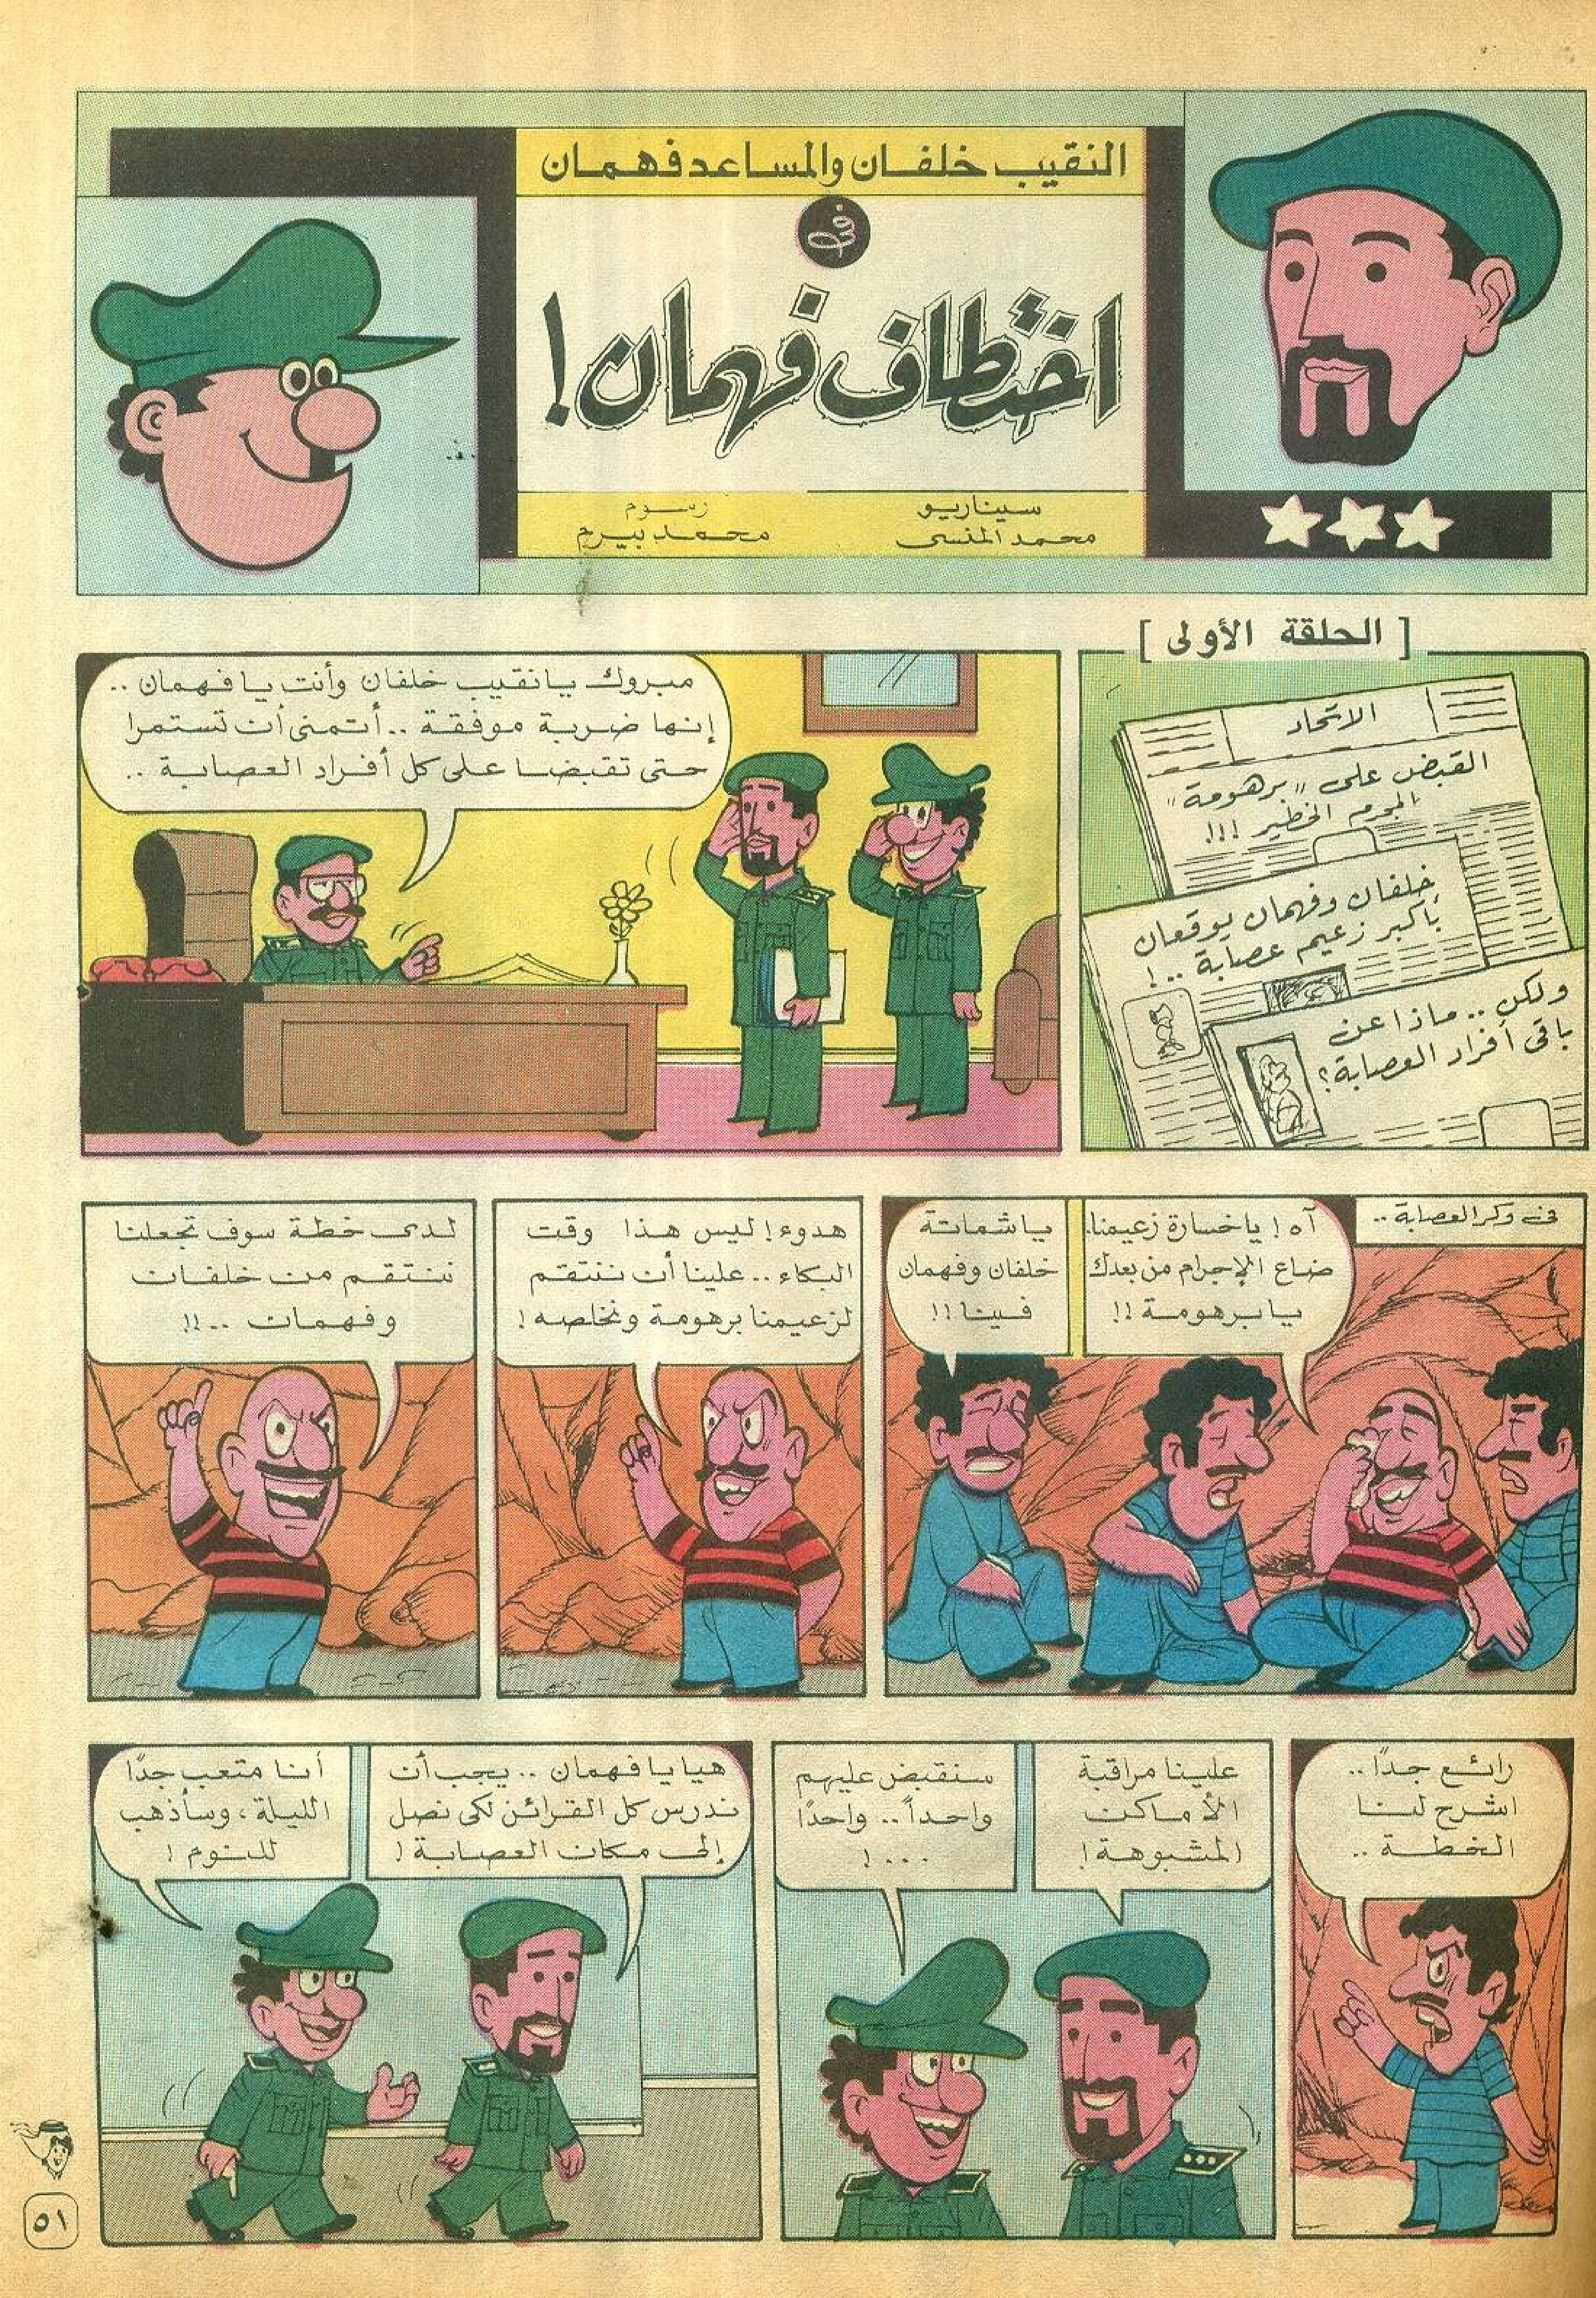 النقيب خلفان والمساعد فهمان
في
اختطاف فهمان!
سيناريو
محمد المنسى
رسوم
محمد بيرم
[ الحلقة الأولى ]
الاتحاد
القبض على "برهومة"
المجرم الخطير !!!
خلفان وفهمان يوقعان
بأكبر زعيم عصابة ..!
ولكن .. ماذا عن
باقى أفراد العصابة؟
مبروك يا نقيب خلفان وأنت يا فهمان ..
إنها ضربة موفقة .. أتمنى أن تستمرا
حتى تقبضا على كل أفراد العصابة ..
فى وكر العصابة ..
آه ! يا خسارة زعيمنا.
ضاع الإجرام من بعدك
يا برهومة !!
يا شماتة
خلفان وفهمان
فينا !!
هدوء ! ليس هذا وقت
البكاء .. علينا أن ننتقم
لزعيمنا برهومة ونخلصه !
لدى خطة سوف تجعلنا
ننتقم من خلفان
وفهمان ..!!
رائع جدًا ..
اشرح لنا
الخطة ..
علينا مراقبة
الأماكن
المشبوهة !
سنقبض عليهم
واحداً .. واحدًا
... !
هيا يا فهمان .. يجب أن
ندرس كل القرائن لكى نصل
إلى مكان العصابة !
أنا متعب جدًا
الليلة ، وسأذهب
للنوم !
٥١